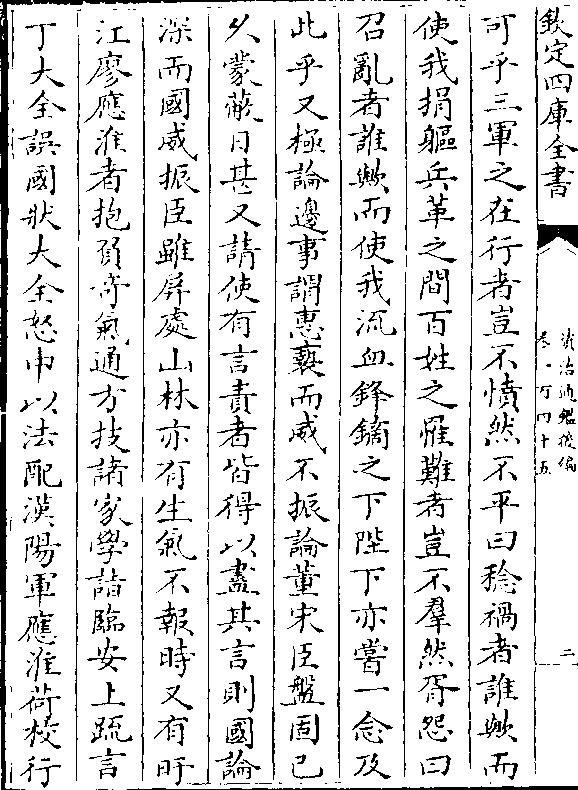 欽定四庫全書
資治通鑑後編
卷一百四十五
二
可乎三軍之在行者豈不憤然不平曰稔禍者誰歟而
使我捐軀兵革之間百姓之罹難者豈不羣然胥怨曰
召亂者誰歟而使我流血鋒鏑之下陛下亦嘗一念及
此乎又極論邊事謂惠褻而威不振論董宋臣盤固已
久蒙蔽日甚又請使有言責者皆得以盡其言則國論
深而國威振臣雖屏處山林亦有生氣不報時又有盱
江廖應淮者抱負奇氣通方技諸家學詣臨安上疏言
丁大全誤國狀大全怒中以法配漢陽軍應淮荷校行